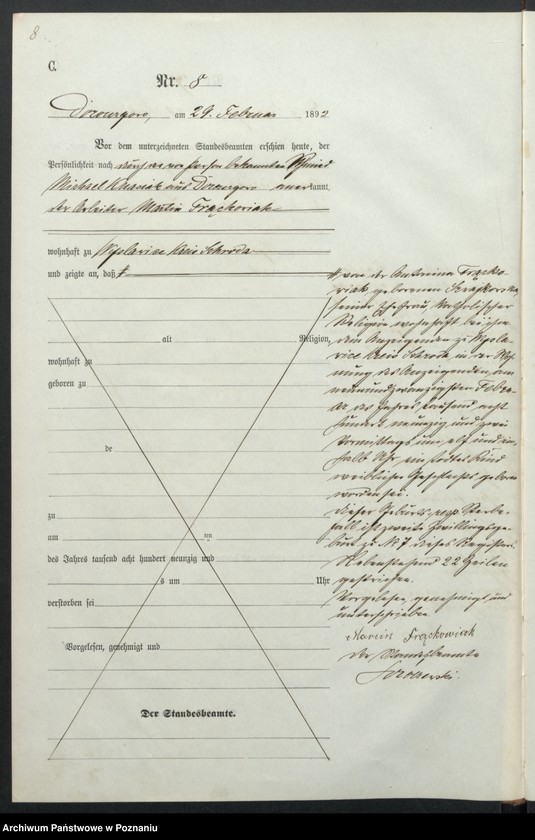 8
C.
Nr. 8
am 29. Februar 1892
Vor dem unterzeichneten Standesbeamten erschien heute, der
Persönlichkeit nach
Michael aus anerkannt,
der Arbeiter Martin Frąckowiak
wohnhaft zu Kreis Schroda
und zeigte an, daß
von der Antonina Frącko-
wiak, geborenen
seiner Ehefrau, katholischer
Religion, wohnhaft bei ihm
dem Anzeigenden zu
Kreis Schroda, in der Woh-
nung des Anzeigenden, am
neunundzwanzigsten Febru-
ar des Jahres tausend acht
hundert neunzig und zwei
Vormittags um elf und ein
halb Uhr ein todtes Kind
weiblichen Geschlechts geboren
worden sei.
Dieser Geburts- resp. Sterbe-
fall ist zweite Zwillingsge-
burt zu N 7 dieses Registers.
Nebenstehend 22 Zeilen
gestrichen.
Vorgelesen, genehmigt und
unterschrieben
Marcin Frąckowiak
Der Standesbeamte
alt Religion,
wohnhaft zu
geboren zu
de
zu
am ten
des Jahres tausend acht hundert neunzig und
s um Uhr
verstorben sei
Vorgelesen, genehmigt und
Der Standesbeamte.
Archiwum Państwowe w Poznaniu